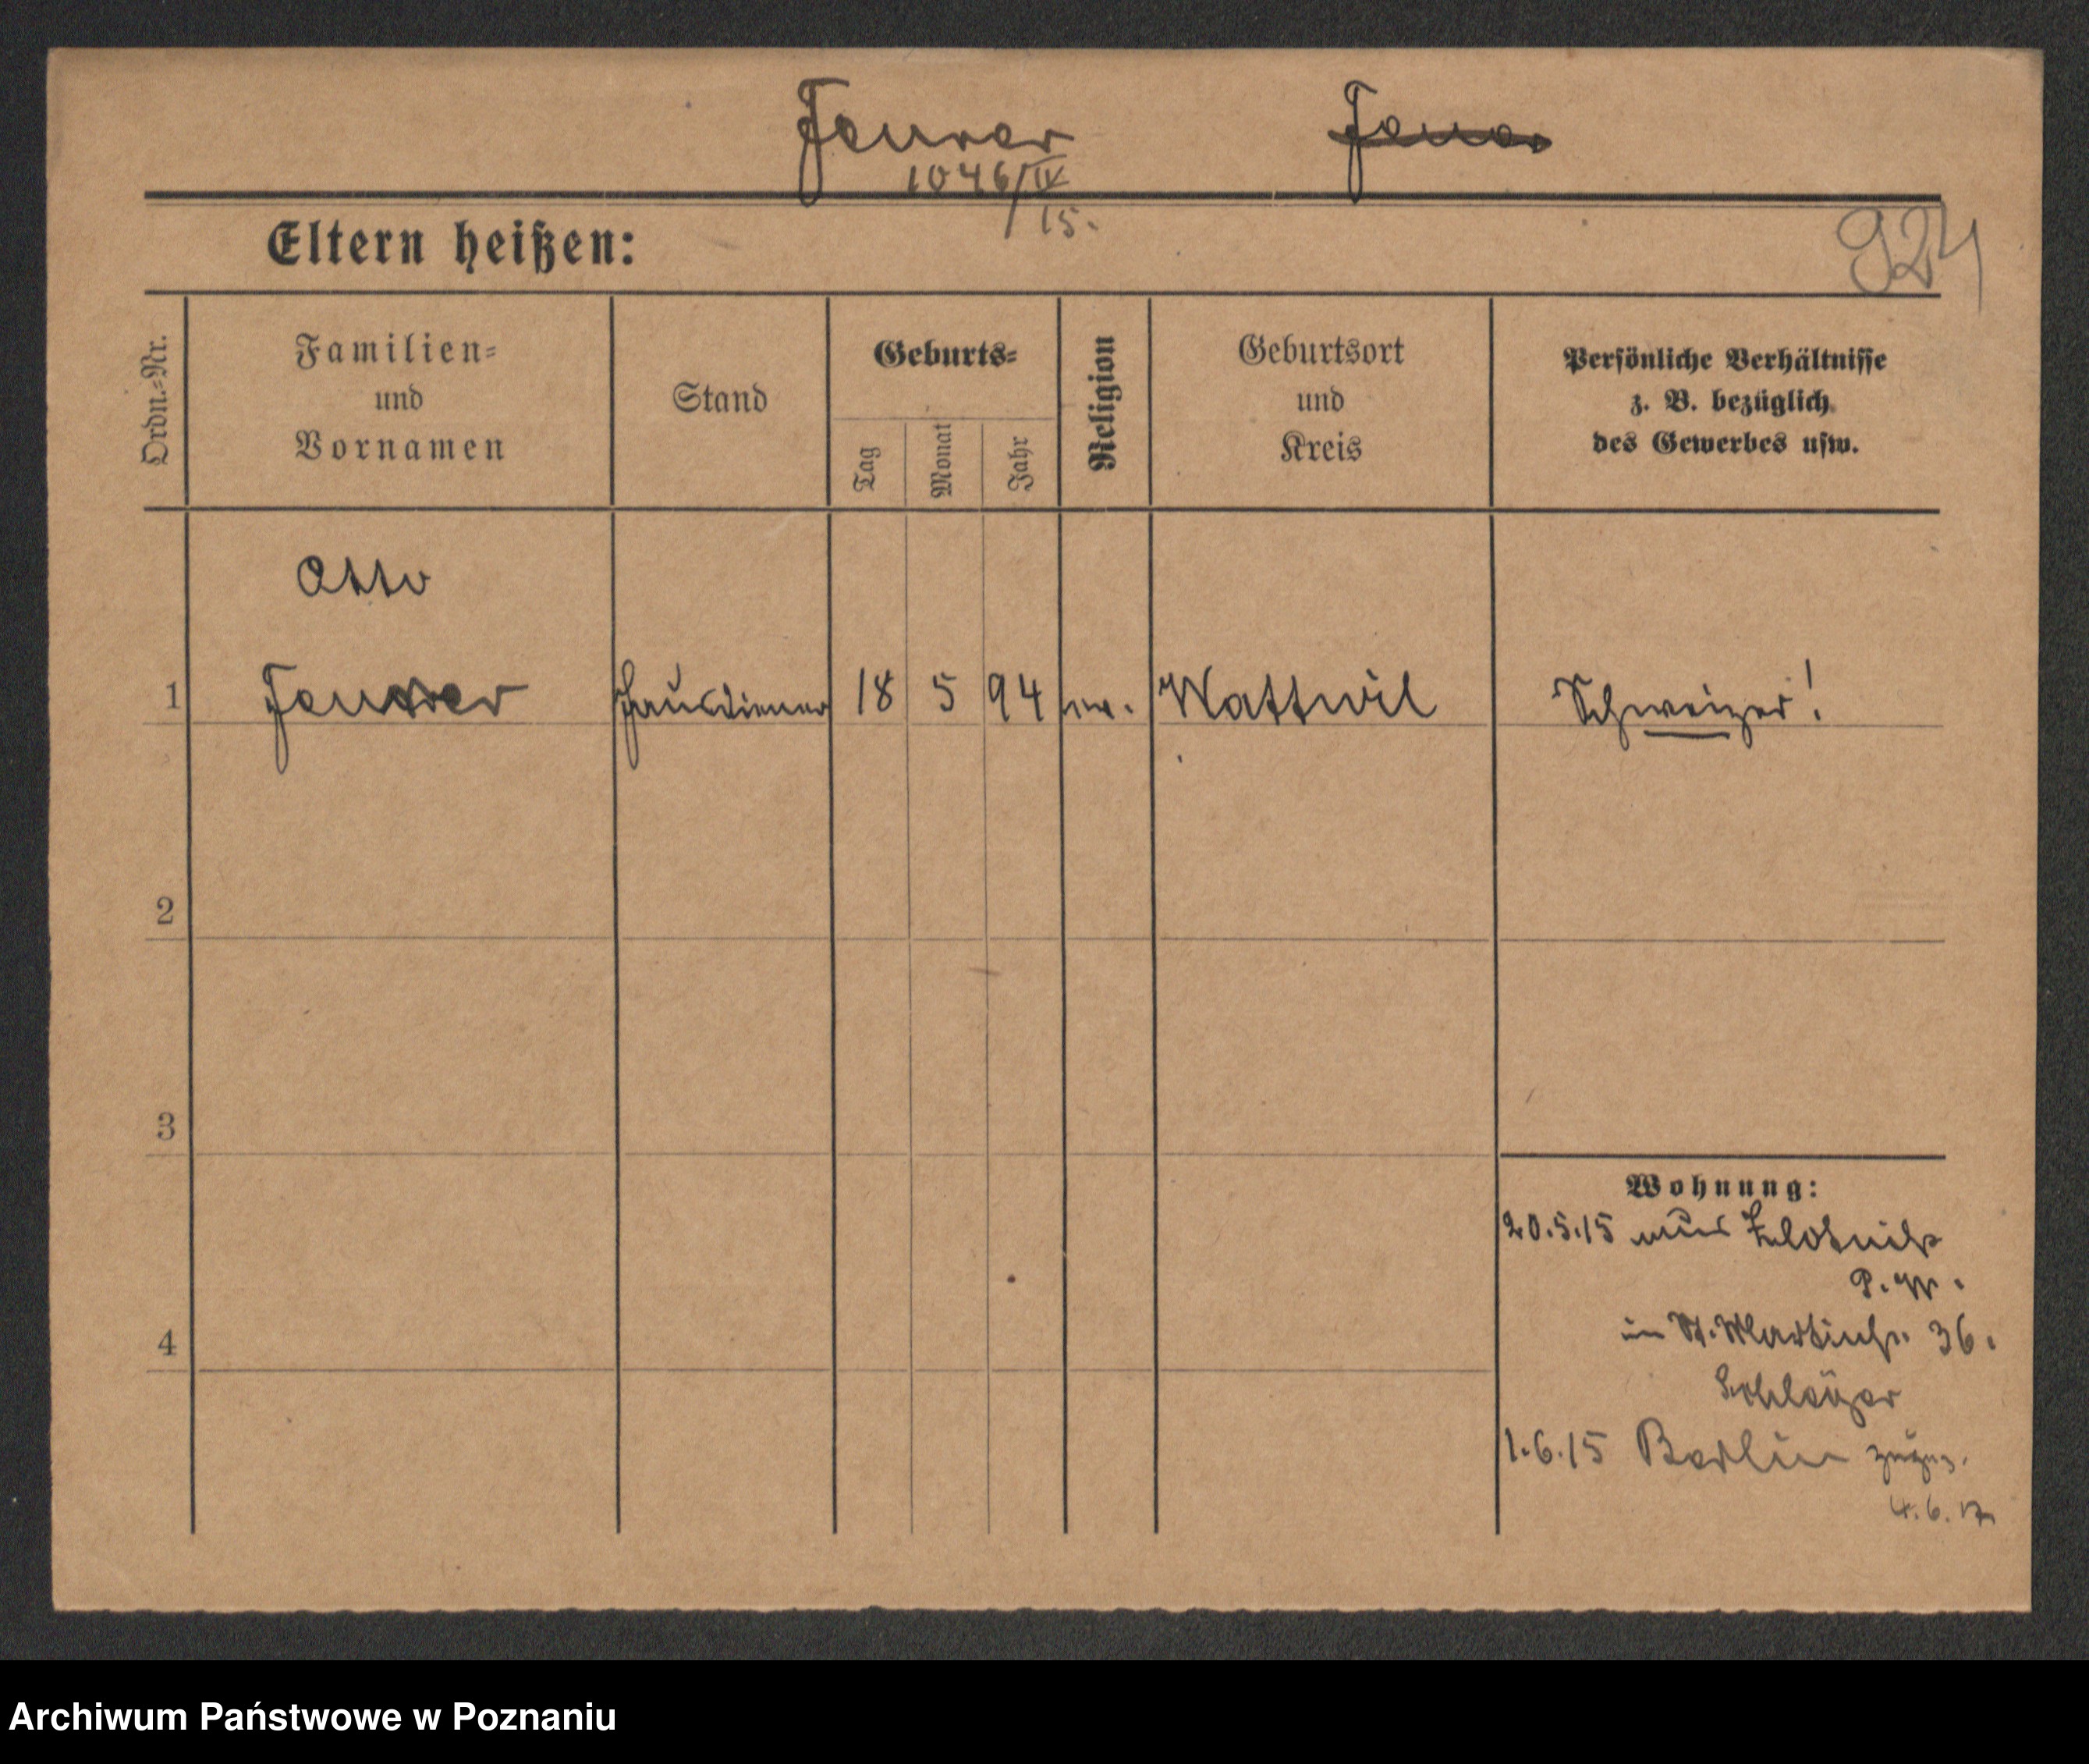 Feurer
1046/IV
15.
Eltern heißen:
924
Ordn.-Nr.
Familien-
und
Vornamen
Stand
Geburts-
Tag
Monat
Jahr
Religion
Geburtsort
und
Kreis
Persönliche Verhältnisse
z. B. bezüglich
des Gewerbes usw.
Otto
1 Feurer Hausdiener 18 5 94 ev. Wattwil Schweizer!
2
3
4
Wohnung:
20.5.15 aus Zlotnik
P. W.
in St. Martinstr. 36.
Schleyer
1.6.15 Berlin
4.6.
Archiwum Państwowe w Poznaniu